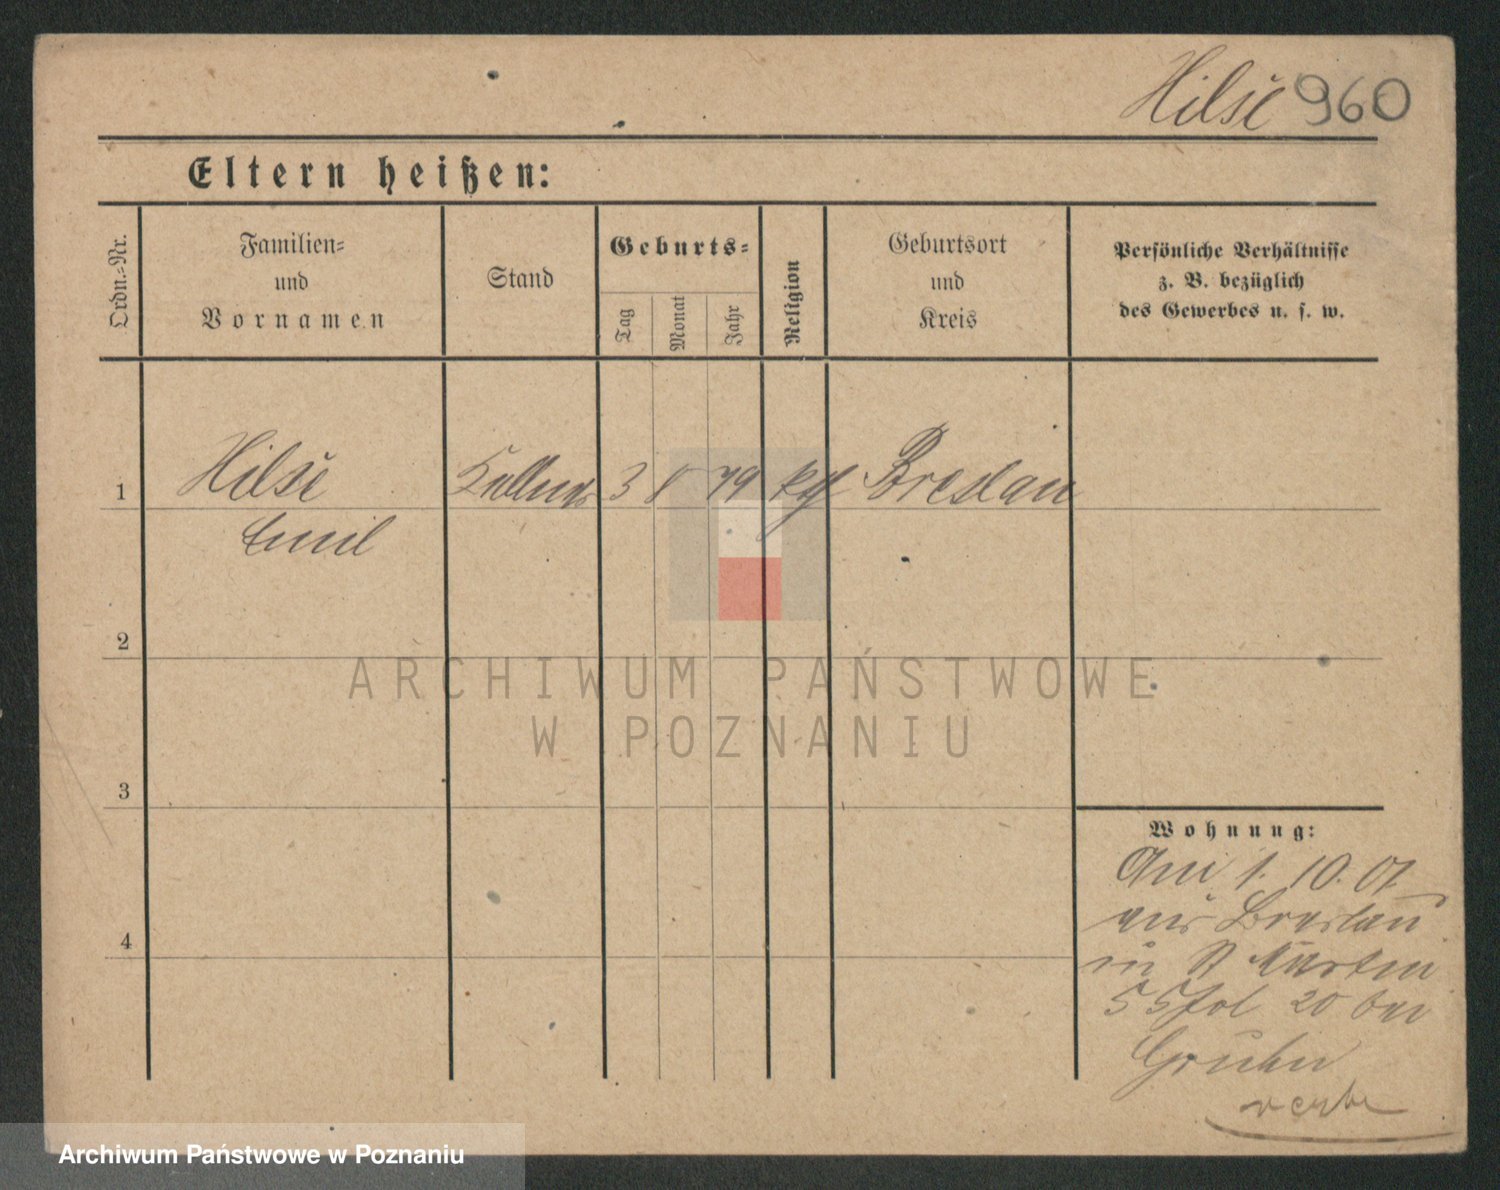 Hilse 960
Eltern heißen:
Ordn.-Nr.
Familien-
und
Vornamen
Stand
Geburts-
Tag
Monat
Jahr
Religion
Geburtsort
und
Kreis
Persönliche Verhältnisse
z. B. bezüglich
des Gewerbes u. s. w.
1
Hilse
Emil
Kellner
3 8 79 kth Breslau
2
ARCHIWUM PAŃSTWOWE
W POZNANIU
3
Wohnung:
Am 1. 10. 07
aus Breslau
in St Martin
55 fol 20 bei
Gruhn
4
Archiwum Państwowe w Poznaniu